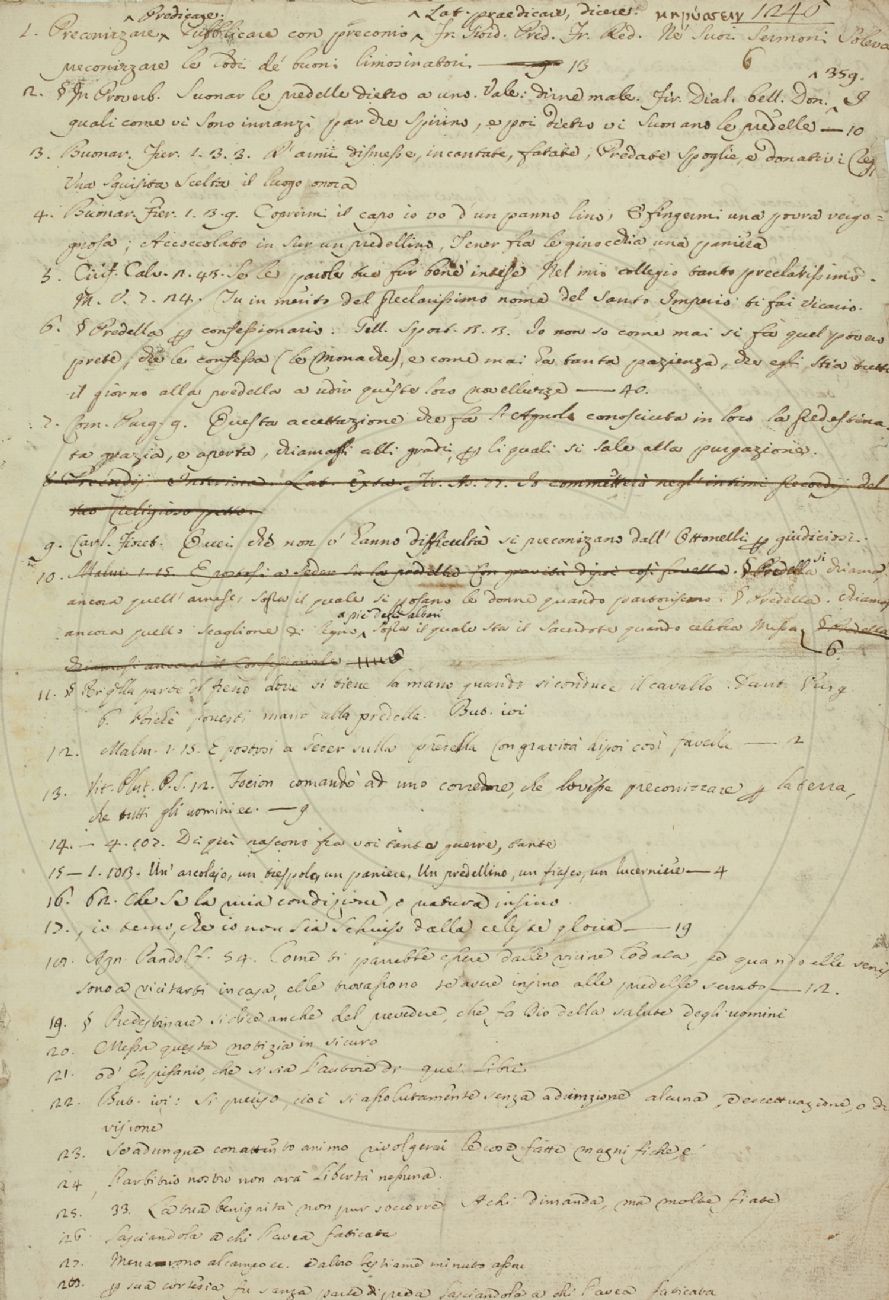 Predicare. Lat. praedicare, dicere. κηρύσσειν 1246
1. Preconizzare, Pubblicare con preconio. Fr. Giord. Pred. Fr. Red. Ne' suoi Sermoni Soleva
preconizzare le lodi de' buoni limosinatori. 13 6
2. § In Proverb. Suonar le predelle dietro a uno. Vale: dirne male. Fir. Dial. bell. Don. 359. I
quali come vi sono innanzi par che spirino, e poi dietro vi suonano le predelle — 10
3. Buonar. Fier. 1. 3. 3. D'armi dismesse, incantate, fatate, Predate spoglie, e donativi
Una squisita scelta il luogo onora
4. Buonar. Fier. 1. 3. 9. Coprirmi il capo io vo d'un panno lino, E fingermi una povra vergo=
gnosa; Accoccolato in sur un predellino, Tener fra le ginocchia una paniera
5. Ciriff. Calv. 2. 45. Se le parole tue fur bene intese Nel mio collegio tanto preclarissimo.
M. V. 7. 24. Tu in merito del preclarissimo nome del Santo Imperio ti fai Vicario.
6. § Predella per confessionario. Tell. Sport. 3. 3. Io non so come mai si fa quel povero
prete, che le confessa (le Monache), e come mai ha tanta pazienza, che egli stia tutto
il giorno alla predella a udir queste loro novelluzze — 40.
7. Com. Purg. 9. Questa accettazione che fa l'Agnolo conosciuta in loro la predestina-
ta grazia, e aperta, chiamasi alli gradi, per li quali si sale alla purgazione.
Io commetterò negl'intimi precordj del
tuo religioso petto.
9. Carl. Fioret. Quei, che non v'hanno difficultà si preconizano dall'Ottonelli per giudiciosi.
10. Malm. 1. 15. E postosi a seder su la predella Con gravità dipoi così favella. § Predella si chiama
ancora quell'arnese, sopra il quale si posano le donne quando partoriscono. § Predella. Chiamasi
ancora quello scaglione di legno a piè degli altari sopra il quale sta il Sacerdote quando celebra Messa § Predella
chiamasi ancora il Confessionale 6.
11. § Per quella parte del freno dove si tiene la mano quando si conduce il cavallo. Dant. Purg.
6. Poichè ponesti mano alla predella. But. ivi
12. Malm. 1. 15. E postosi a seder sulla predella Con gravità dipoi così favella — 2
13. Vit. Plut. P. S. 12. Focion comandò ad uno corridore, che dovesse preconizzare per la terra,
che tutti gli uomini ec. — 9
14. — 4. 107. Di qui nascono fra voi tante guerre, tante
15 — 1. 103. Un' arcolajo, un trespolo, un paniere, Un predellino, un fiasco, un lucerniere — 4
16. 62. Che se la mia condizione, o natura insino
17. , io temo, che io non sia schiuso dalla celeste gloria — 19
18. Agn. Pandolf. 54. Come ti parrebbe essere dalle vicine lodata se quando elle venis
sono a vicitarti in casa, elle trovassono te avere insino alle predelle serrato — 12.
19. § Predestinare si dice anche del prevedere, che fa Dio della salute degli uomini
20. Messa questa notizia in sicuro
21. od' Epifanio, che si sia l'autore di que' libri
22. But. ivi: Si preciso, cioè sì assolutamente senza adiunzione alcuna, d'eccettuazione, o di
visione
23. Se adunque con attento animo rivolgerai le cose fatte magnifiche e
24, L'arbitrio nostro non avrà libertà nessuna.
25. 33. La tua benignità non pur soccorre A chi dimanda, ma molte fiate
26 Lasciandola a chi l'avea faticata
27. Menarono al campo ec. e altro bestiame minuto assai
28. per sua cortesia fu sanza parte di preda lasciandola a chi l'avea faticata